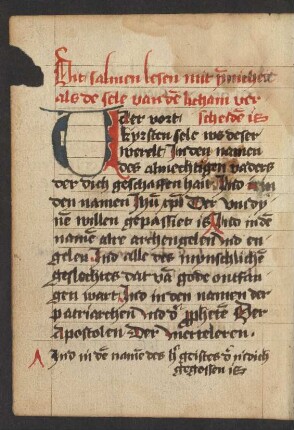 Dit salmen lesen mit ynnicheit
als de sele van dē licham ver
scheidē is
Uaer vort
kyrsten sele vys deser
werelt Jn den namen
des almechtigen vaders
der dich geschaffen hait Jnd in
den namen Der vur dy
ne willen gepassiet is Jnd in dē
namē alre archengelen ind en
gelen Jnd alle des mynschlichē
geslechtes dat vā gode ontfan
gen wart Jnd in den namen der
patriarchen ind Der
Apostolen Der merteleren
Jnd in dē namē des geistes in dich
gegossen is